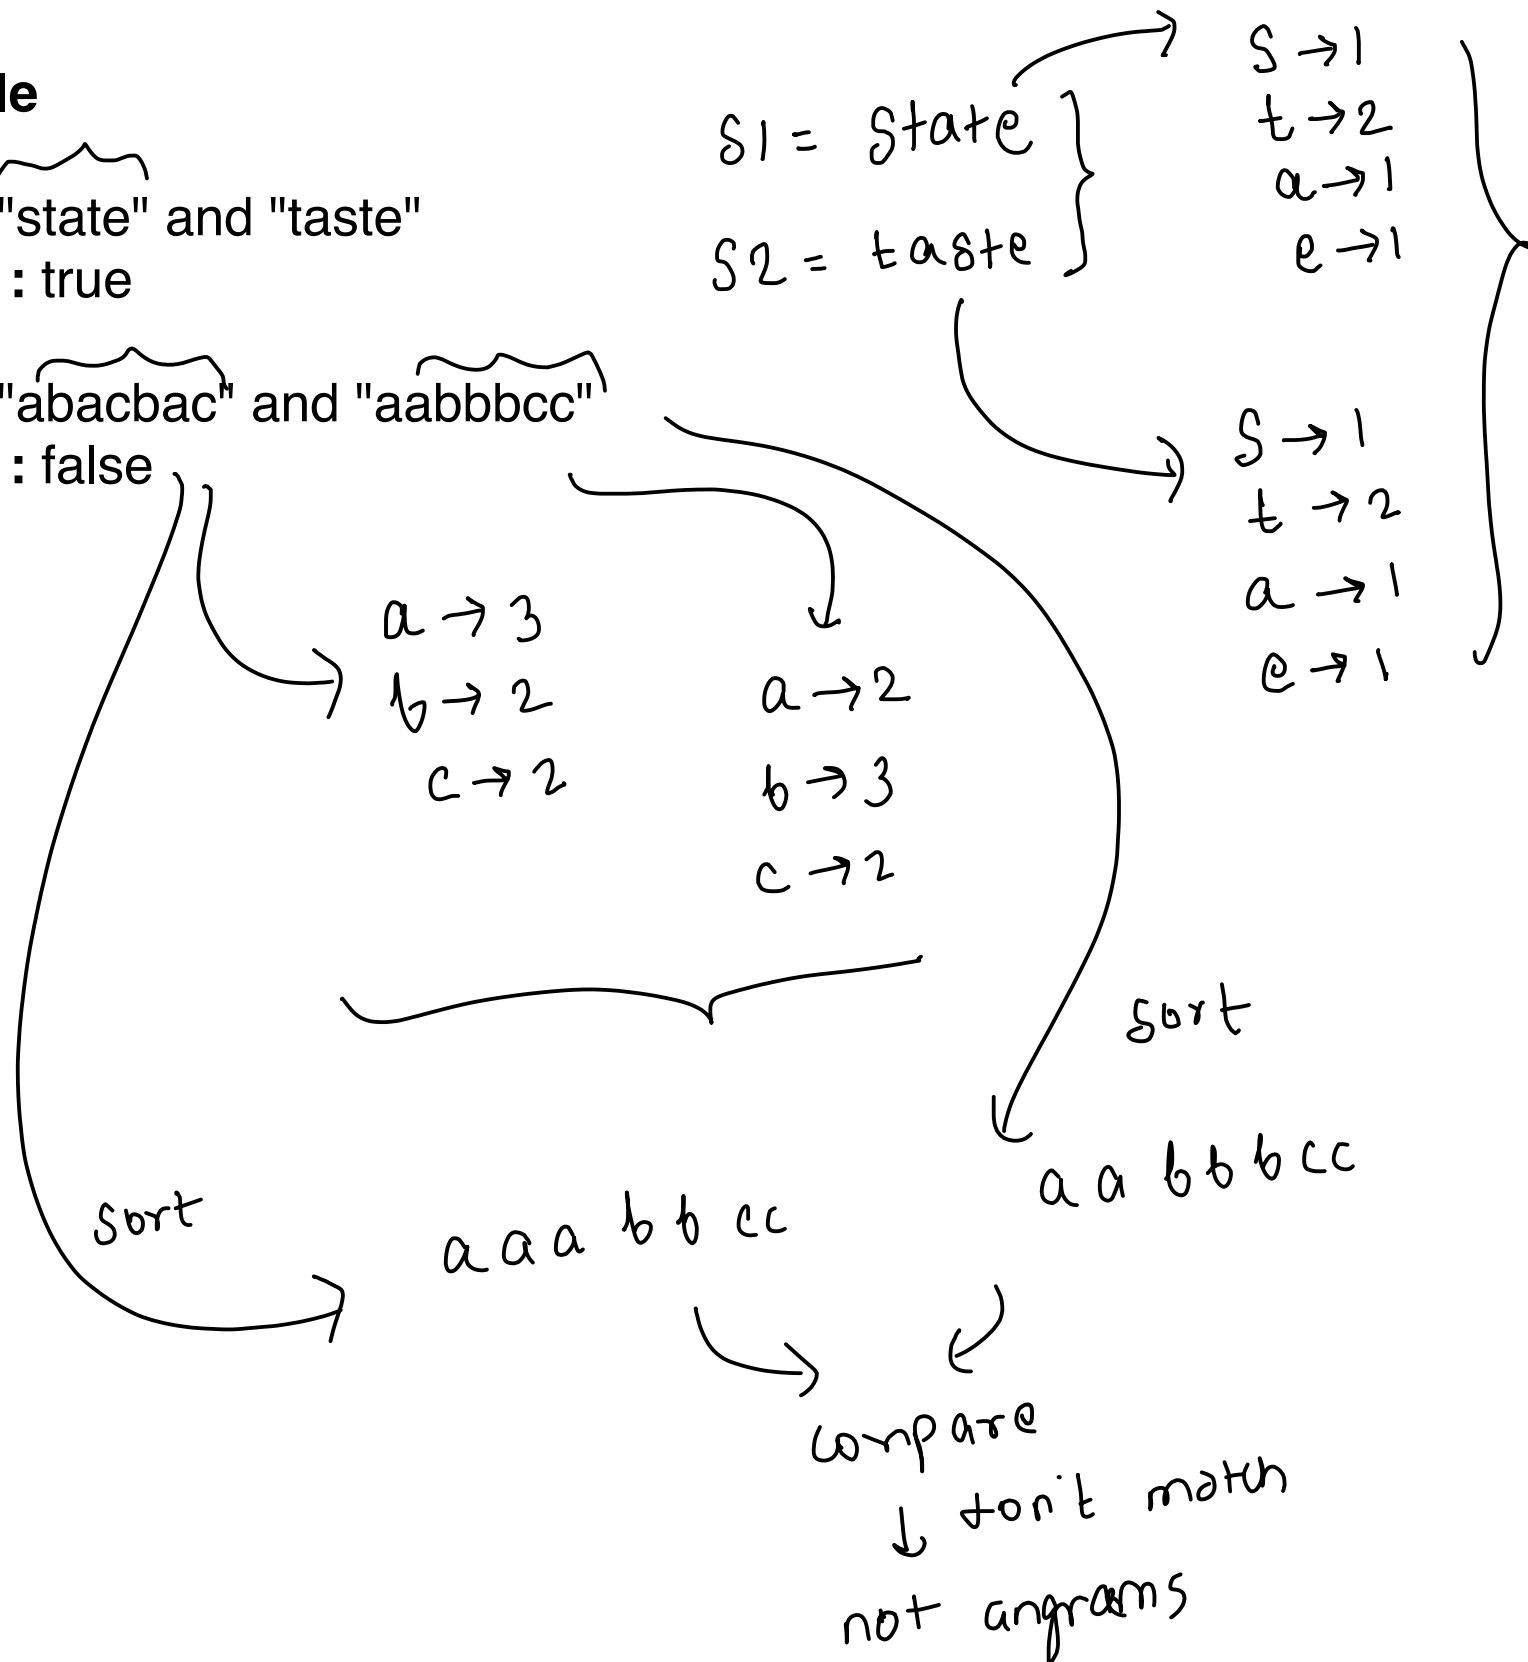 le
"state" and "taste"
: true
"abacbac" and "aabbbcc"
: false
S1 = state
S2 = taste
S → 1
t → 2
a → 1
e → 1
S → 1
t → 2
a → 1
e → 1
a → 3
b → 2
c → 2
a → 2
b → 3
c → 2
sort
sort
a a a b b c c
a a b b b c c
compare
↓ don't match
not angrams